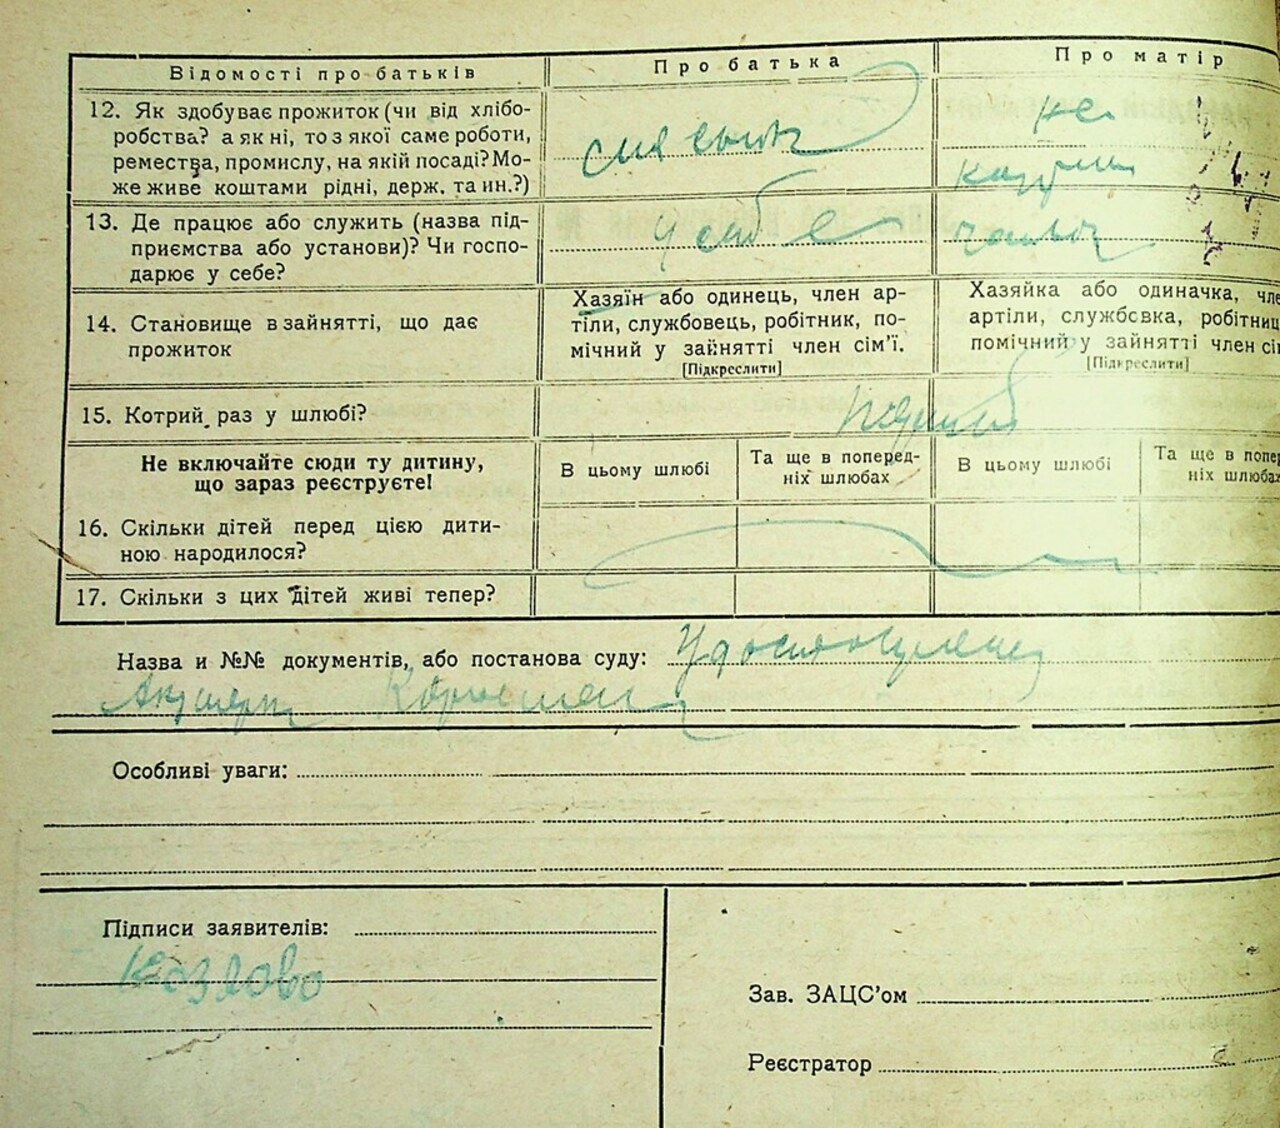 Відомості про батьків
Про батька
Про матір
12. Як здобуває прожиток (чи від хлібо-
робства? а як ні, то з якої саме роботи,
ремества, промислу, на якій посаді? Мо-
же живе коштами рідні, держ. та ин.?)
не
13. Де працює або служить (назва під-
приємства або установи)? Чи госпо-
дарює у себе?
у себе
14. Становище в зайнятті, що дає
прожиток
Хазяїн або одинець, член ар-
тіли, службовець, робітник, по-
мічний у зайнятті член сім'ї.
[Підкреслити]
Хазяйка або одиначка, чле
артіли, службовка, робітниц
помічний у зайнятті член сім
[Підкреслити]
15. Котрий раз у шлюбі?
Первый
Не включайте сюди ту дитину,
що зараз реєструєте!
В цьому шлюбі
Та ще в поперед-
ніх шлюбах
В цьому шлюбі
Та ще в попер
ніх шлюбах
16. Скільки дітей перед цією дити-
ною народилося?
17. Скільки з цих дітей живі тепер?
Назва и №№ документів, або постанова суду: Удостоверение
Акушерки
Особливі уваги:
Підписи заявителів:
Козлово
Зав. ЗАЦС'ом
Реєстратор